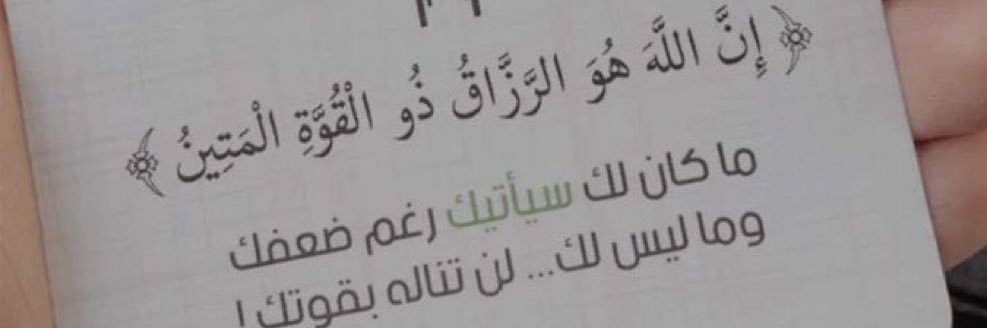 ﴿ إِنَّ اللَّهَ هُوَ الرَّزَّاقُ ذُو الْقُوَّةِ الْمَتِينُ ﴾
ما كان لك سيأتيك رغم ضعفك
وما ليس لك... لن تناله بقوتك !